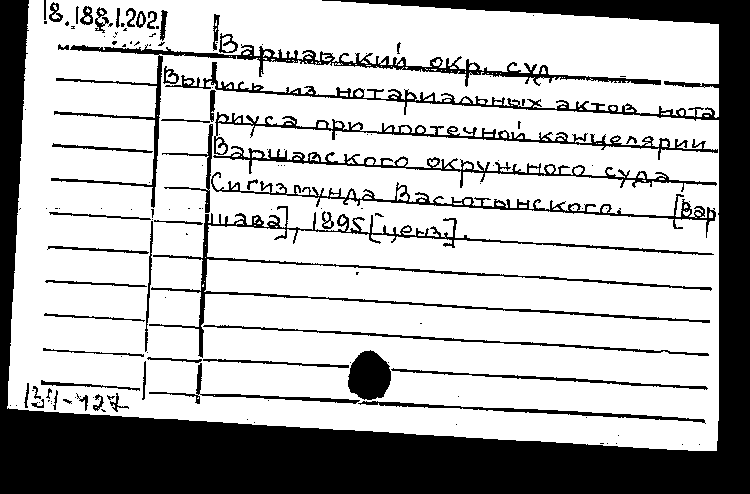 18.188.1.202
Варшавский окр. суд
Выпись из нотариальных актов нота
риуса при ипотечной канцелярии
Варшавского окружного суда
Сигизмунда Васютынского. [Вар
шава], 1895 [ценз.].